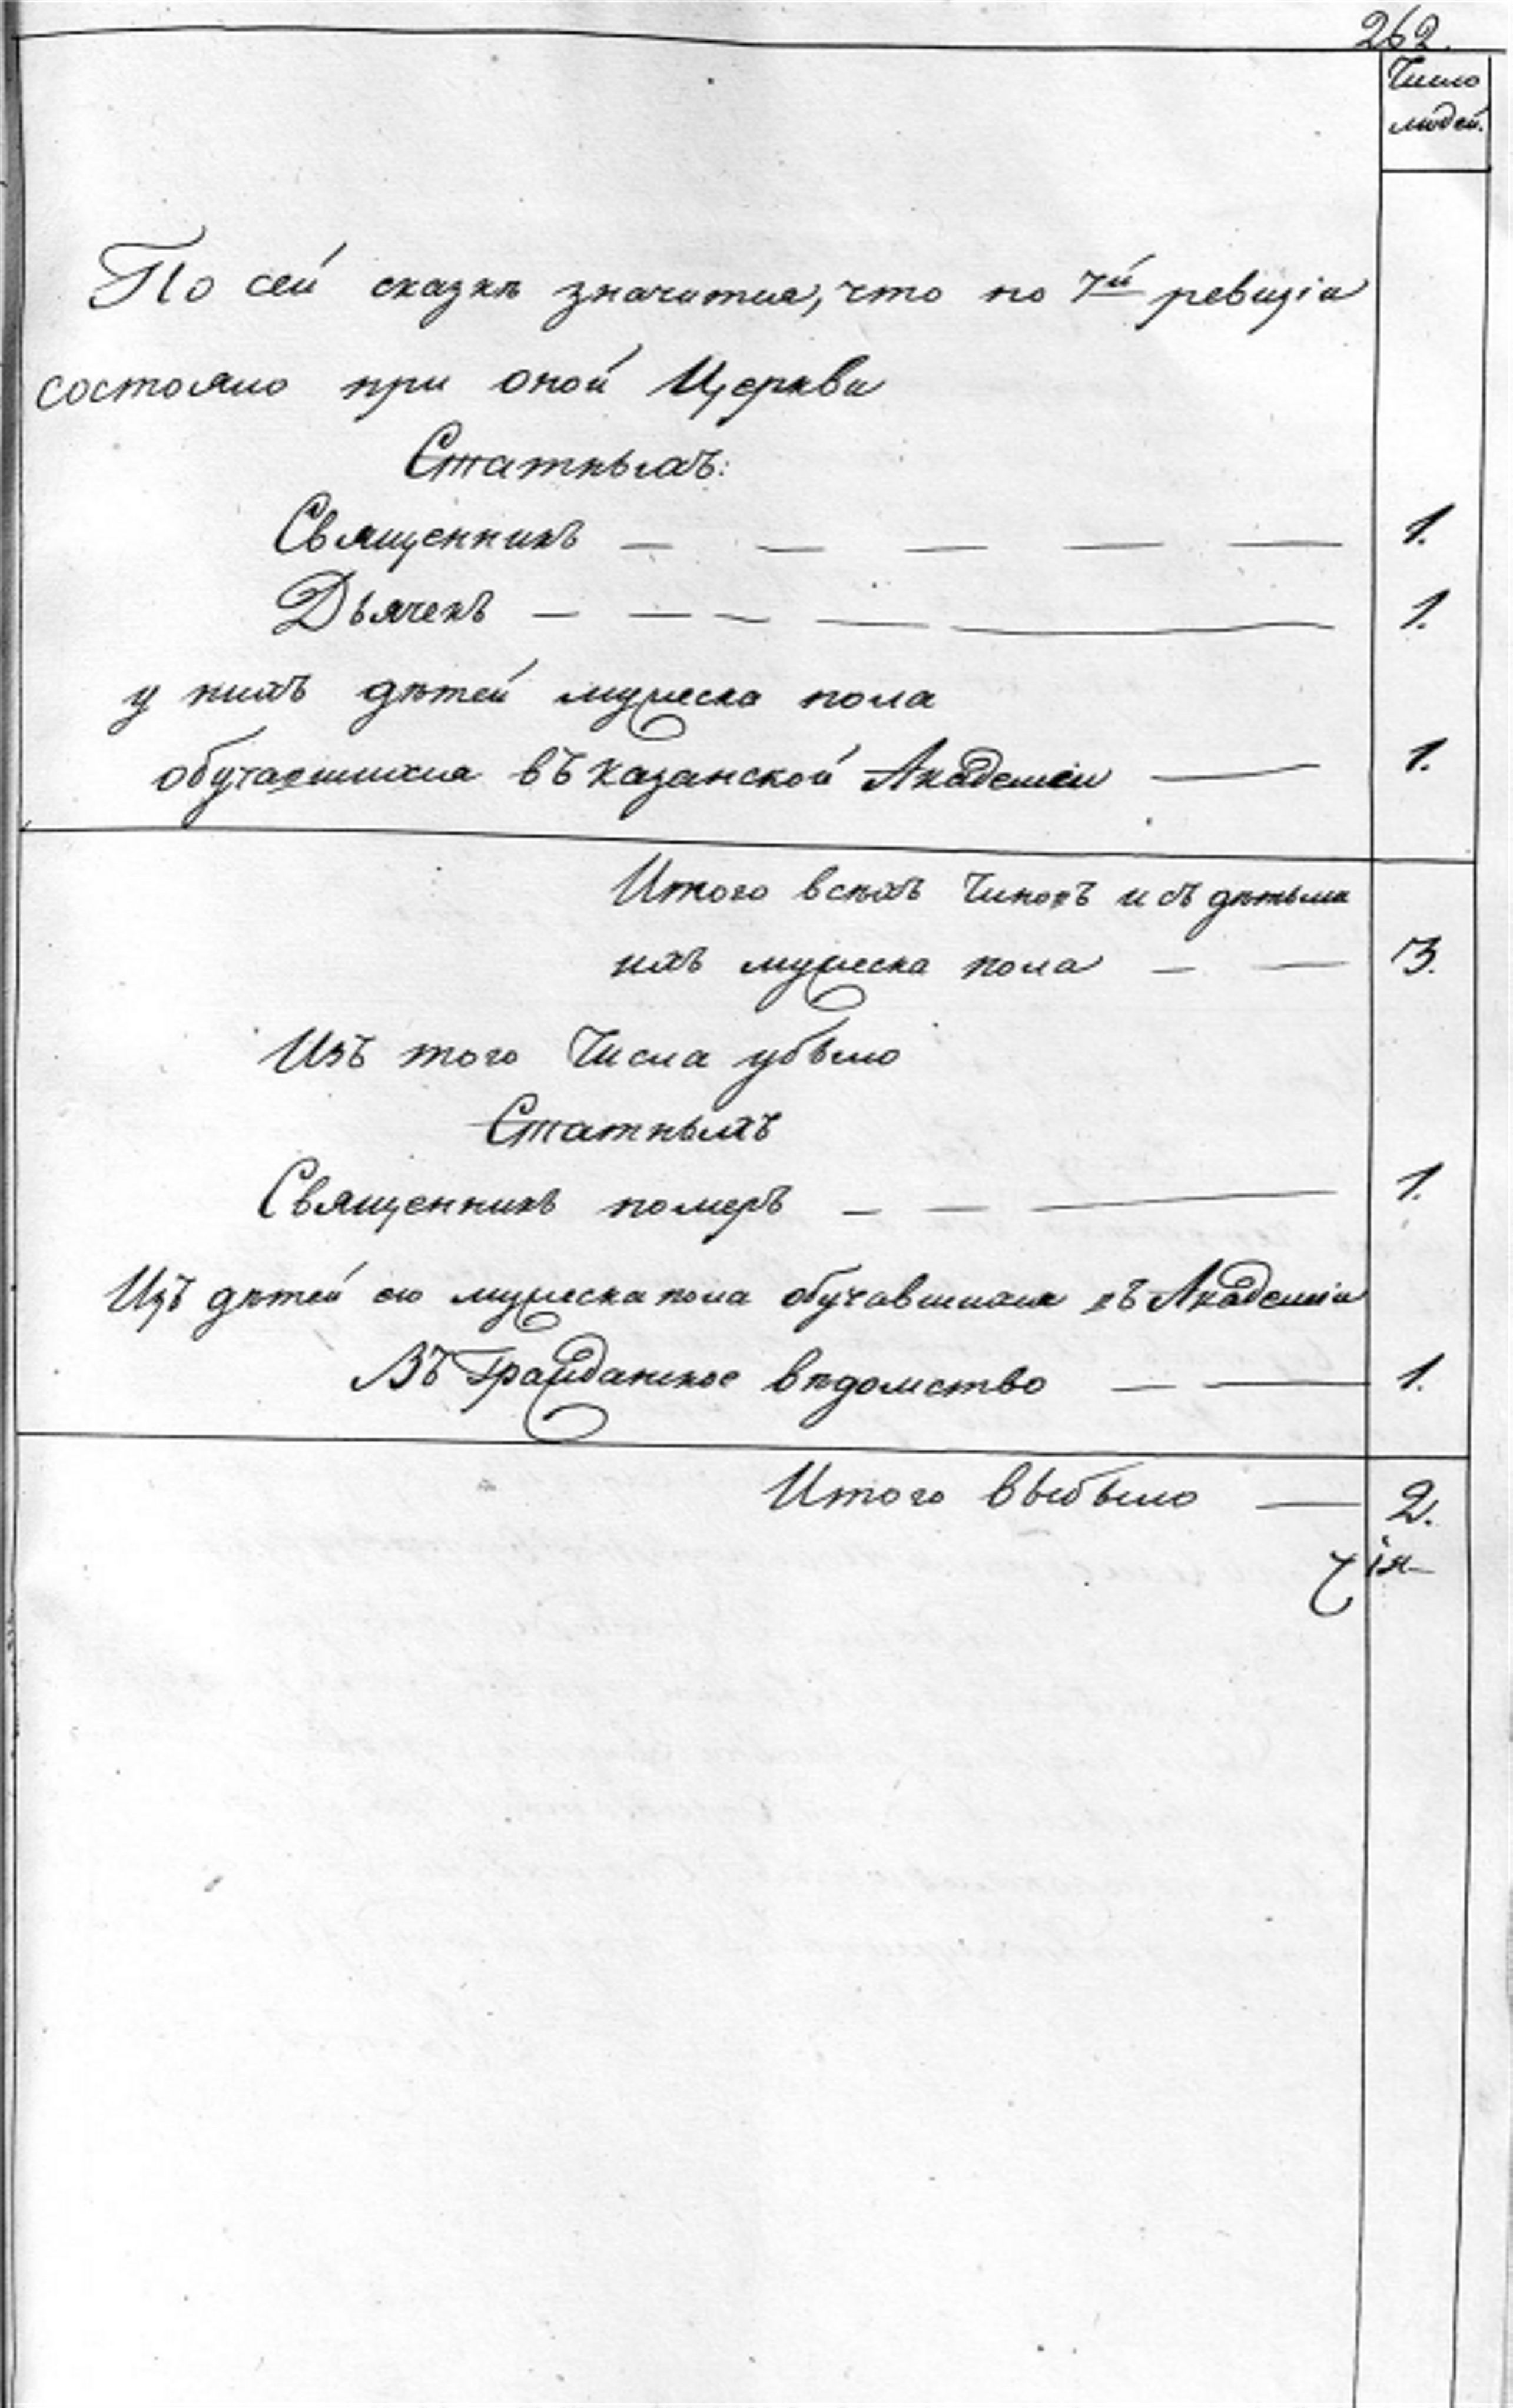 262.
Число
людей.
По сей сказкѣ значится, что по 7й ревизіи
состояло при оной Церкви
Статныхъ:
Священникъ — — — — — 1.
Дьячекъ — — — — — 1.
у нихъ дѣтей мужеска пола
обучавшихся въ казанской Академіи — 1.
Итого всѣхъ Чиновъ и съ дѣтьми
ихъ мужеска пола — — 3.
Изъ того Числа убыло
Статныхъ
Священникъ померъ — — — 1.
Изъ дѣтей его мужеска пола обучавшихся въ Академіи
Въ Гражданское вѣдомство — — 1.
Итого выбыло — 2.